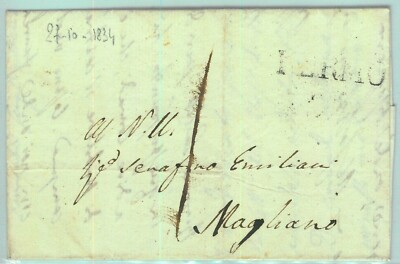 27-10-1834
FERMO
Al N. U.
Sig.r Serafino Emiliani
Magliano